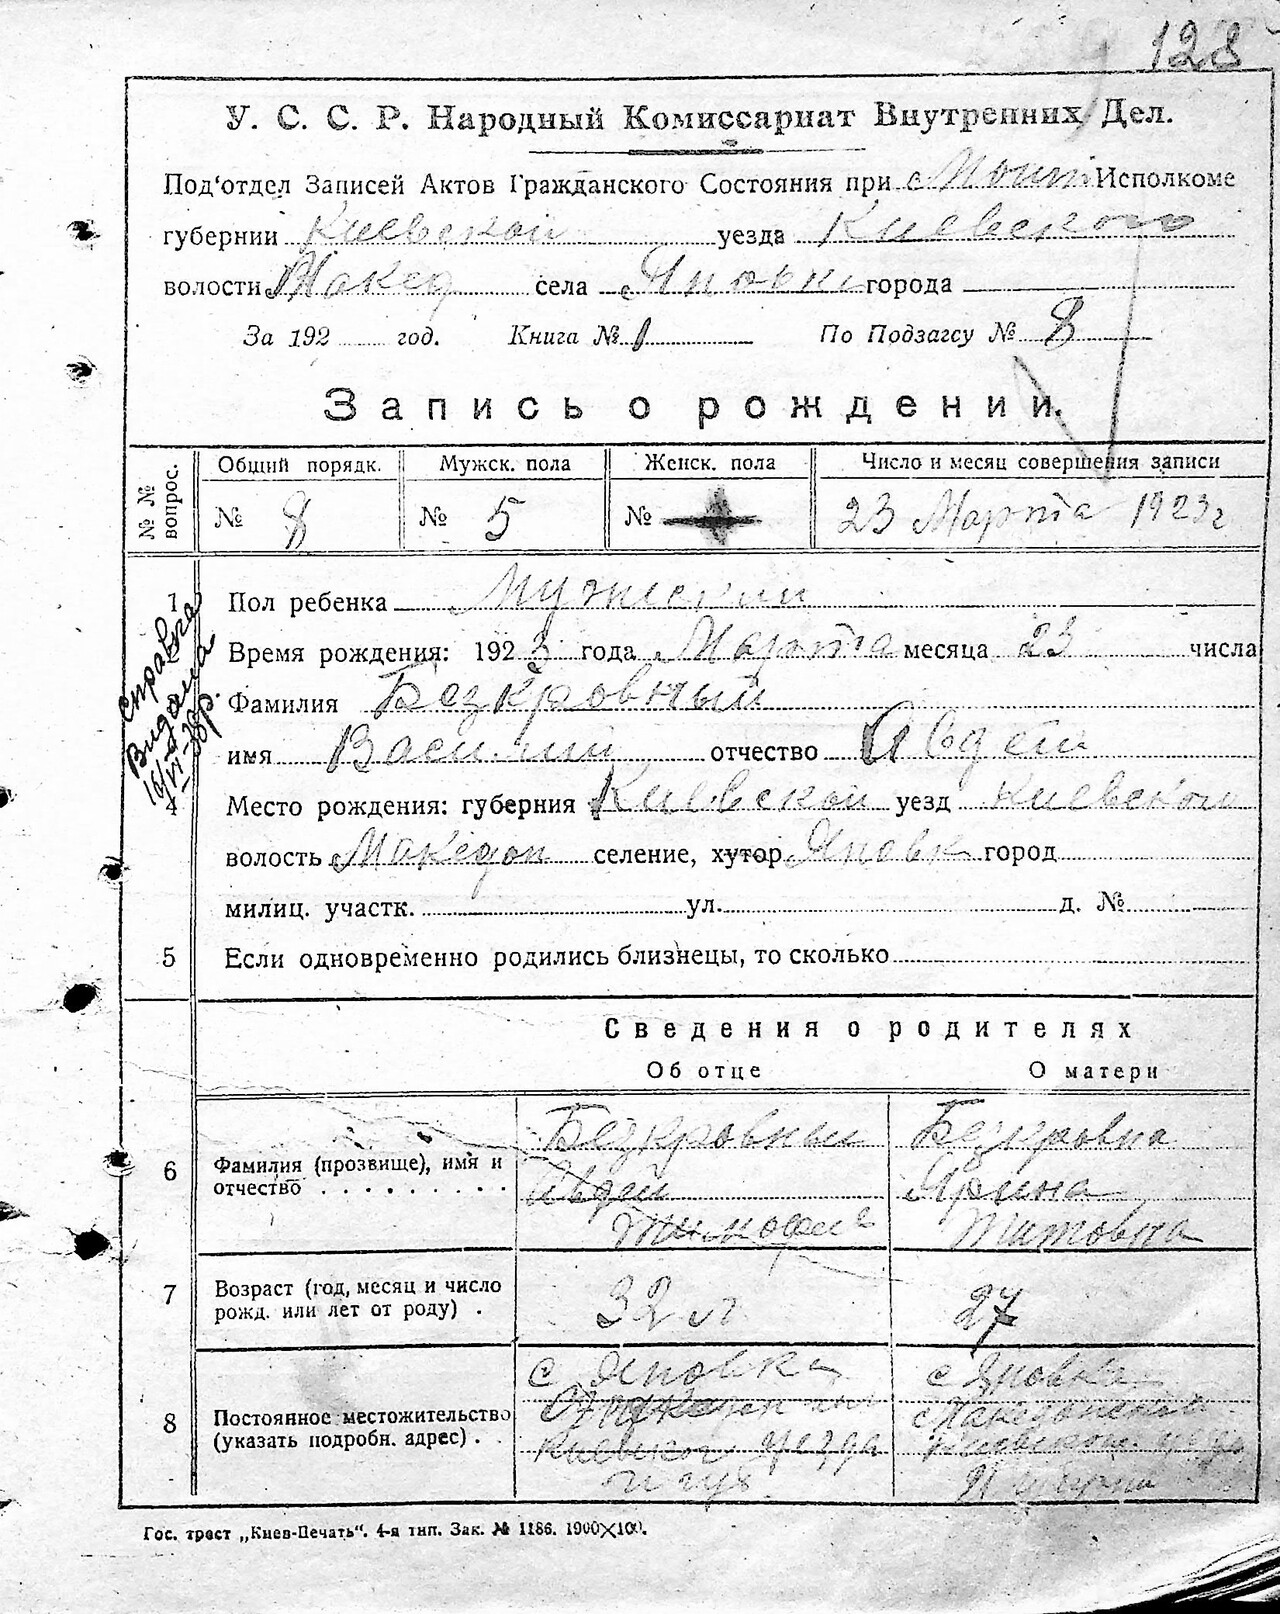 128
У. С. С. Р. Народный Комиссариат Внутренних Дел.
Под'отдел Записей Актов Гражданского Состояния при Исполкоме
губернии Киевской уезда Киевского
волости Макед села Яновки города
За 192 год. Книга № 1 По Подзагсу № 8
Запись о рождении.
№ № вопрос. Общий порядк. Мужск. пола Женск. пола Число и месяц совершения записи
№ 8 № 5 № 23 Марта 1923 г
1 Пол ребенка Мужской
2 Время рождения: 1923 года Марта месяца 23 числа
Фамилия Безкровный
имя Василий отчество Авдеи
4 Место рождения: губерния Киевской уезд Киевского
волость Македон селение, хутор Яновк город
милиц. участк. ул. д. №
5 Если одновременно родились близнецы, то сколько
Справка
Видана
16/VI-38р.
Сведения о родителях
Об отце О матери
6 Фамилия (прозвище), имя и отчество
Безкровный Безкровна
Авдей Ярина
Тимофие Титовна
7 Возраст (год, месяц и число рожд. или лет от роду)
32 л 27
8 Постоянное местожительство (указать подробн. адрес)
с Яновка с Яновка
Киевского уезда
и губ И губернии
Гос. трест „Киев-Печать“. 4-я тип. Зак. № 1186. 1900×100.